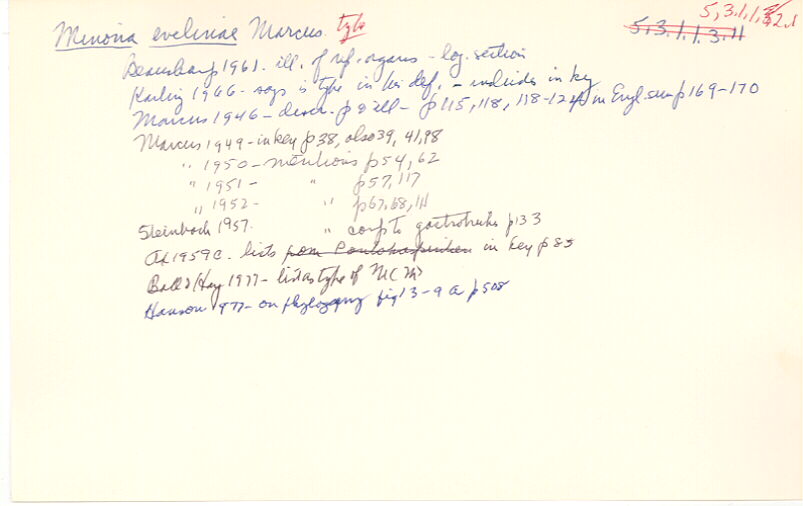 5,3,1,1,2.1
5,3.1.1.3.11
Minona evelinae Marcus type
Beauchamp 1961- ill. of rep. organs - log. section
Karling 1966- says is type in his def. - includes in key
Marcus 1946- descr. p & ill- p115, 118, 118-124, in Engl. sum p169-170
Marcus 1949- in key p38, also 39, 41, 98
" 1950- mentions p54, 62
" 1951- " p57, 117
" 1952- " p67, 68, 111
Steinbock 1957. " comp to gastrotrichs p133
Ax 1959c- lists from in key p85
Ball & Hay 1977- list as type of
Hanson 1977- on phylogeny fig 13-9a p508